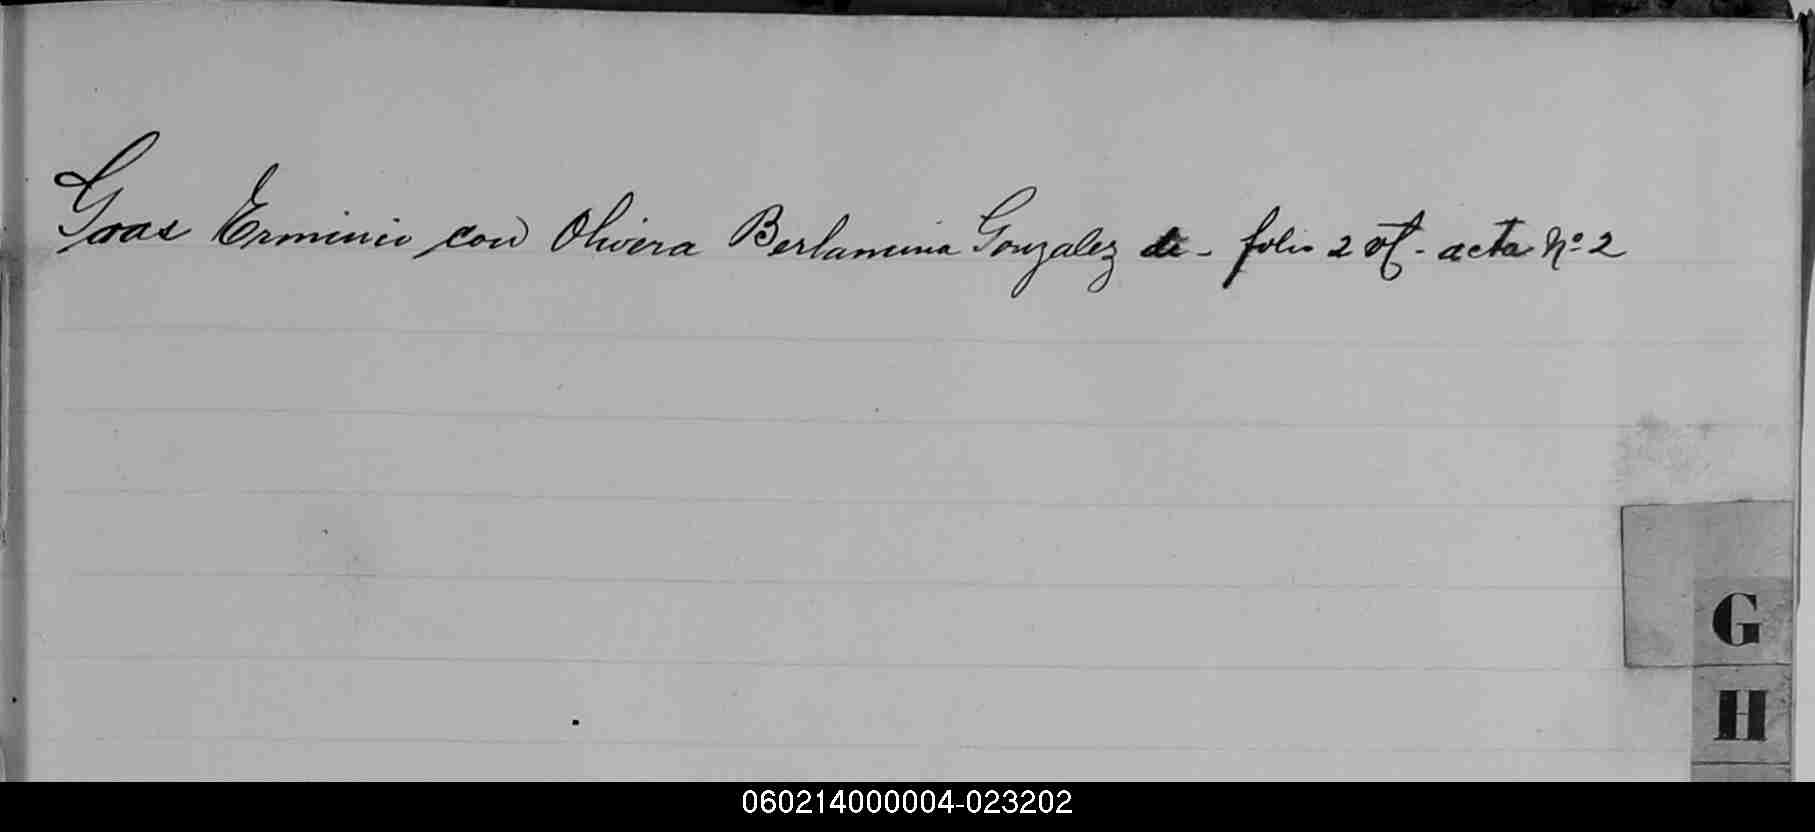 Gras Erminio con Olivera Berlamina Gonzalez de - folio 2 vt. - acta Nº 2
G
H
060214000004-023202